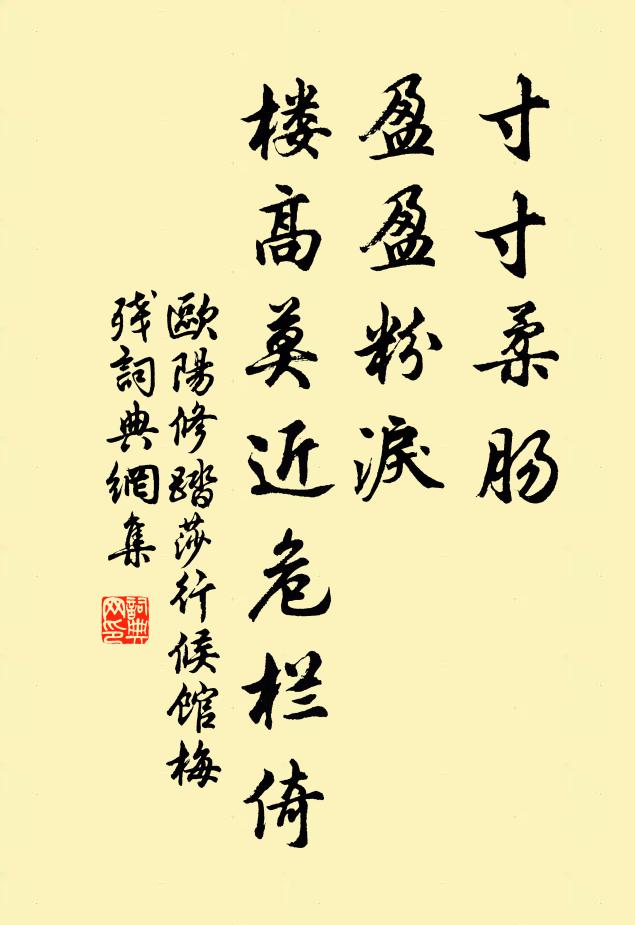 寸寸柔肠
盈盈粉淚
楼高莫近危栏倚
歐陽修踏莎行候馆梅
残詞典網集
詞典
网印